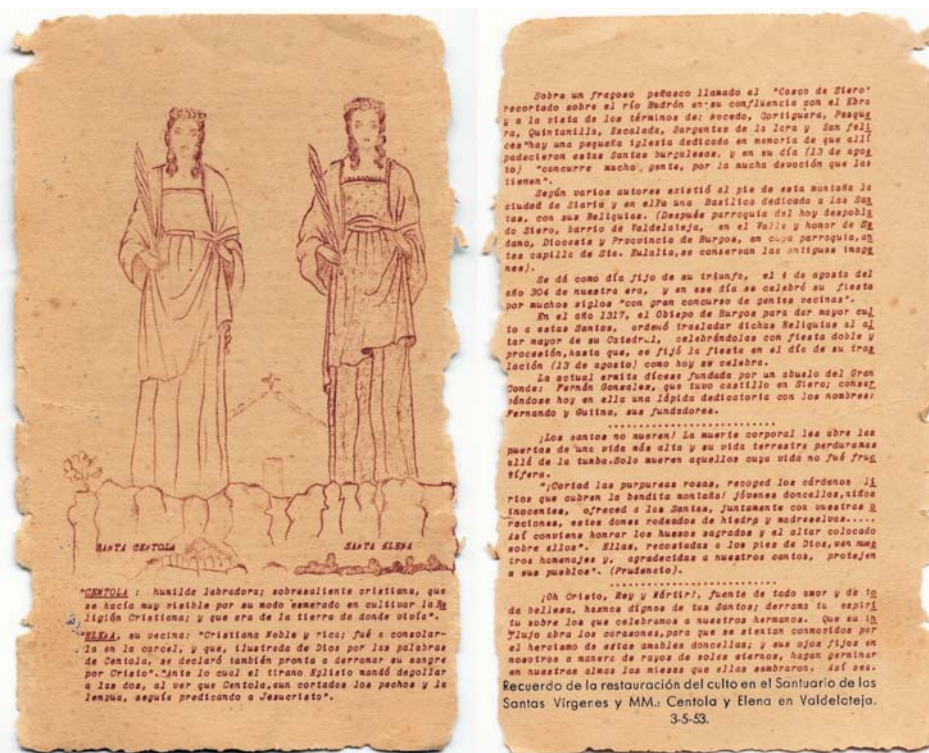 SANTA CENTOLA
SANTA ELENA
"CENTOLA : humilde labradora; sobresaliente cristiana, que
se hacía muy visible por su modo esmerado en cultivar la Re
ligión Cristiana; y que era de la tierra de donde vivía".
"ELENA, su vecina: "Cristiana Noble y rica; fué a consolar-
la en la carcel, y que, ilustrada de Dios por las palabras
de Centola, se declaró también pronta a derramar su sangre
por Cristo". "Ante lo cual el tirano Eglisio mandó degollar
a las dos, al ver que Centola, aun cortados los pechos y la
lengua, seguía predicando a Jesucristo".
Sobre un fragoso peñasco llamado el "Casco de Siero"
recortado sobre el río Rudrón en su confluencia con el Ebro
y a la vista de los términos de: Nocedo, Cortiguera, Pesque
ra, Quintanilla, Escalada, Sargentes de la Lora y San feli
ces "hay una pequeña iglesia dedicada en memoria de que allí
padecieron estas Santas burgalesas, y en su día (13 de agos
to) "concurre mucha gente, por la mucha devoción que las
tienen".
Según varios autores existió al pie de esta montaña la
ciudad de Siaria y en ella una Basílica dedicada a las San
tas, con sus Reliquias. (Después parroquia del hoy despobla
do Siero, barrio de Valdelateja, en el Valle y honor de Se
dano, Diocesis y Provincia de Burgos, en cuya parroquia, an
tes capilla de Sta. Eulalia, se conservan las antiguas image
nes).
Se dá como día fijo de su triunfo, el 4 de agosto del
año 304 de nuestra era, y en ese día se celebró su fiesta
por muchos siglos "con gran concurso de gentes vecinas".
En el año 1317, el Obispo de Burgos para dar mayor cul
to a estas Santas, ordenó trasladar dichas Reliquias al al
tar mayor de su Catedral, celebrándolas con fiesta doble y
procesión, hasta que, se fijó la fiesta en el día de su tras
lación (13 de agosto) como hoy se celebra.
La actual ermita dícese fundada por un abuelo del Gran
Conde: Fernán Gonzales, que tuvo castillo en Siero; conser
vándose hoy en ella una lápida dedicatoria con los nombres:
Fernando y Gutina, sus fundadores.
..............................
¡Los santos no mueren! La muerte corporal les abre las
puertas de una vida más alta y su vida terrestre perdura mas
allá de la tumba. Solo mueren aquellos cuya vida no fué fruc
tífera.
"¡Cortad las purpureas rosas, recoged los cárdenos li
rios que cubren la bendita montaña! jóvenes doncellas, niños
inocentes, ofreced a las Santas, juntamente con vuestras o
raciones, estos dones rodeados de hiedra y madreselvas.....
Así conviene honrar los huesos sagrados y el altar colocado
sobre ellos". Ellas, recostadas a los pies de Dios, ven nues
tros homenajes y, agradecidas a nuestros cantos, protejen
a sus pueblos". (Prudencio).
..............................
¡Oh Cristo, Rey y Mártir!, fuente de todo amor y de to
da belleza, haznos dignos de tus Santos; derrama tu espíri
tu sobre los que celebramos a nuestros hermanos. Que su in
flujo abra los corazones, para que se sientan conmovidos por
el heroísmo de estas amables doncellas; y sus ojos fijos en
nosotros a manera de rayos de soles eternos, hagan germinar
en nuestras almas las mieses que ellas sembraron. Así sea.
Recuerdo de la restauración del culto en el Santuario de las
Santas Vírgenes y MM.: Centola y Elena en Valdelateja.
3-5-53.